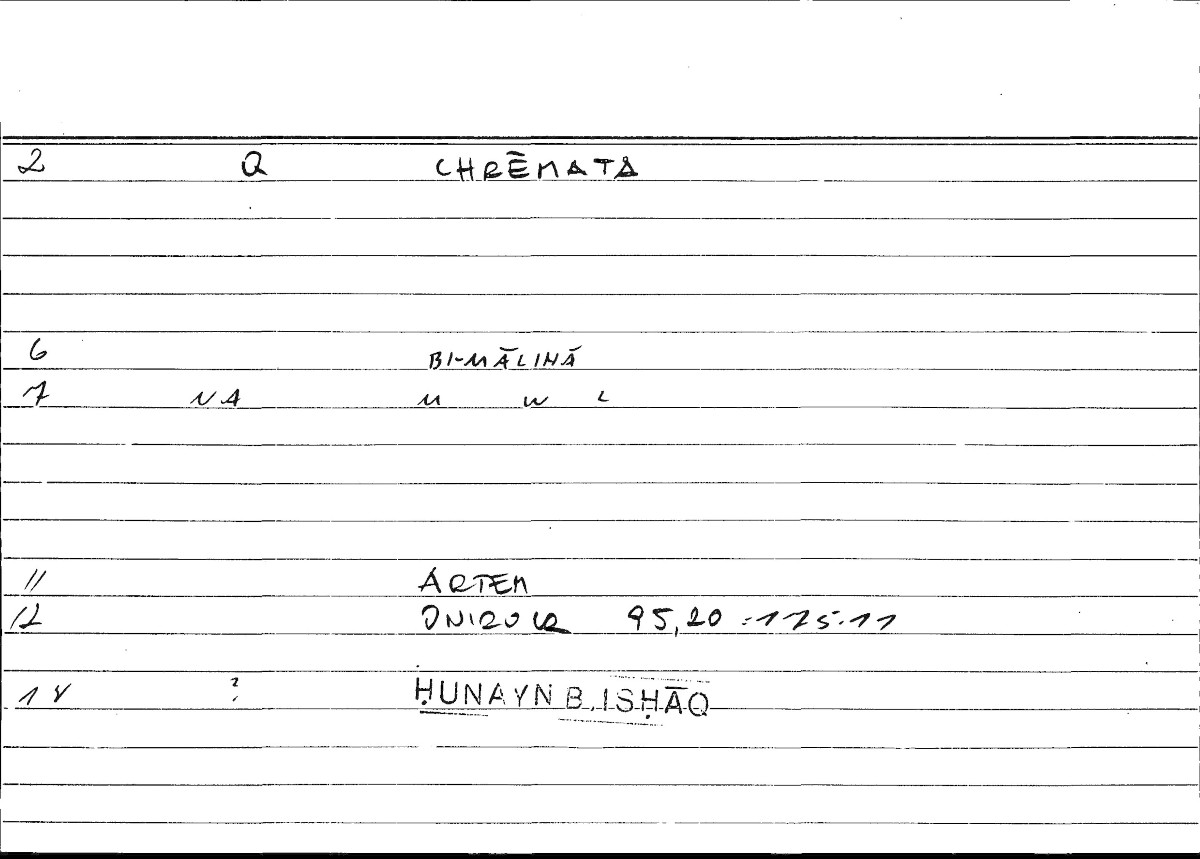 2 Q CHRĒMATA
6 BI-MĀLIHĀ
7 NA M W L
11 ARTEM
12 ONIROCR 95,20 = 175.11
14 ? ḤUNAYN B. ISḤĀQ